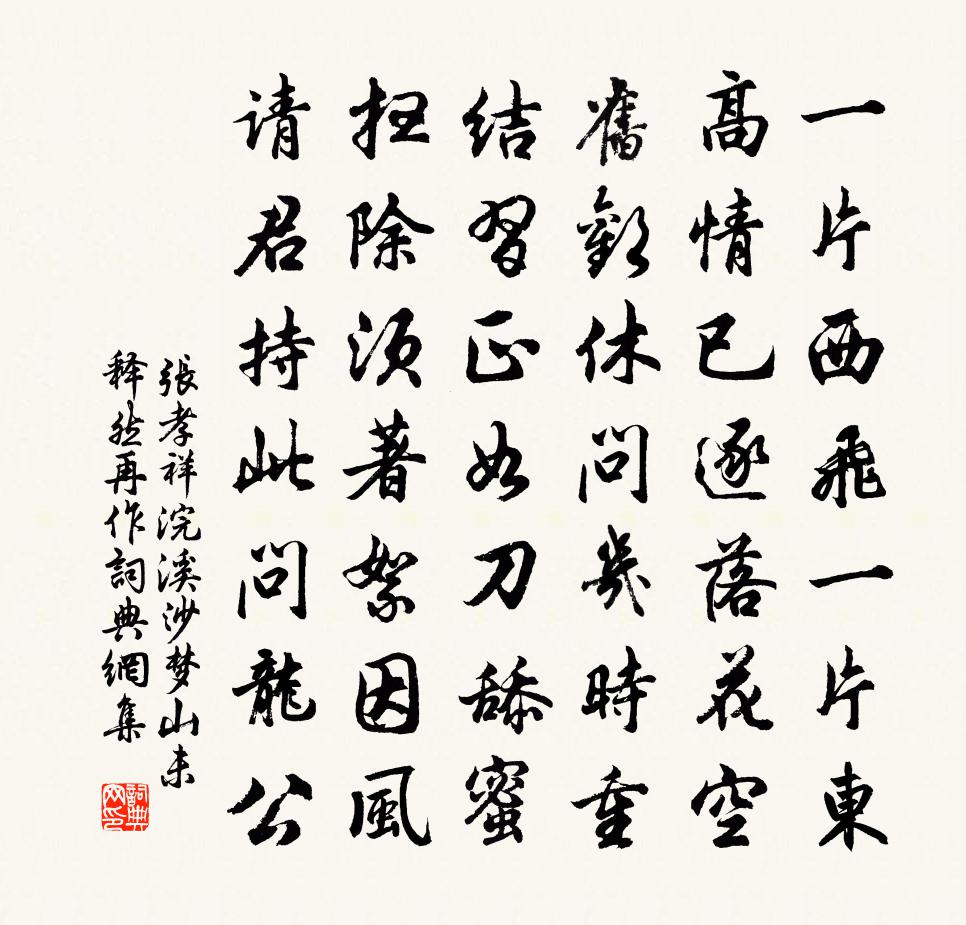 一片西飛一片東
髙情已逐落花空
舊歡休問幾時重
結習正如刀舔蜜
掃除須著絮因風
请君持此問龍公
張孝祥浣溪沙梦山未
释然再作詞典網集
詞典
网印